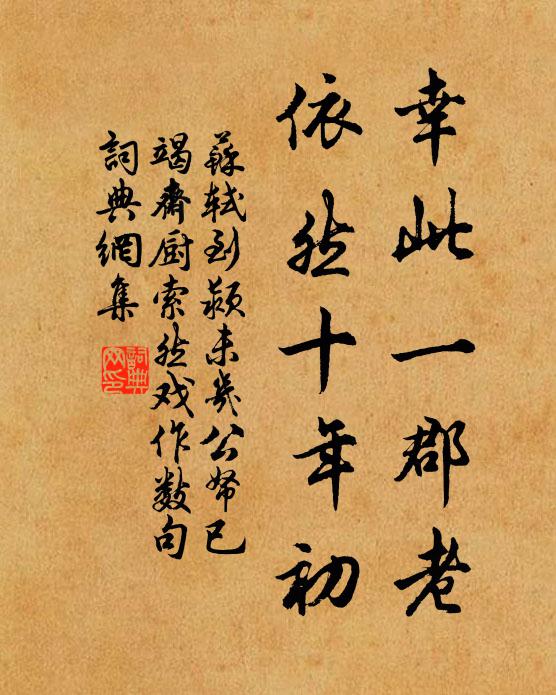 幸此一郡老
依然十年初
蘇軾到潁未幾公帑已
竭齋厨索然戏作數句
詞典網集
詞典网印